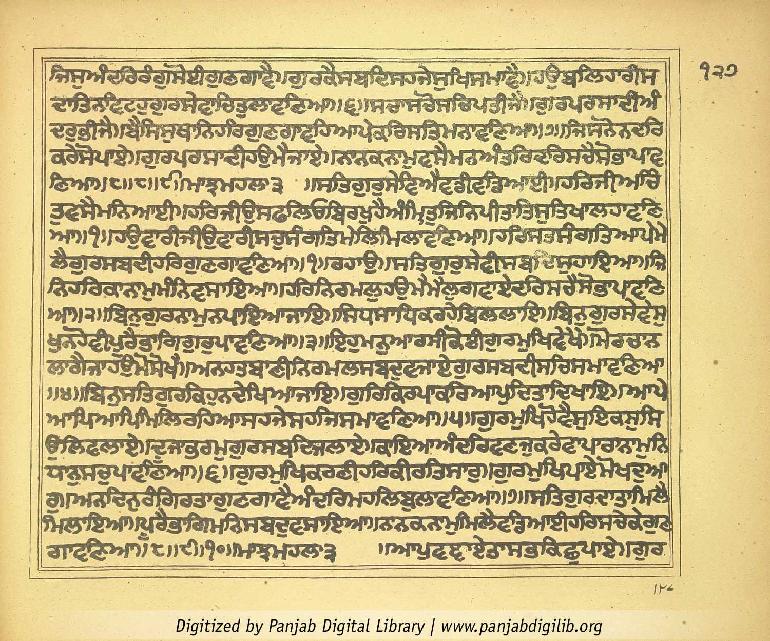 ਜਿਸੁਅੰਦਰਿਰੰਗੁਸੋਈਗੁਣਗਾਵੈ॥ਗੁਰਕੈਸਬਦਿਸਹਜੇਸੁਖਿਸਮਾਵੈ॥ਹਉਬਲਿਹਾਰੀਸ
ਦਾਤਿਨਵਿਟਹੁਗੁਰਸੇਵਾਚਿਤੁਲਾਵਣਿਆ॥੬॥ਸਚਾਸਚੋਸਚਿਪਤੀਜੈ॥ਗੁਰਪਰਸਾਦੀਅੰ
ਦਰੁਭੀਜੈ॥ਬੈਸਿਸੁਥਾਨਿਹਰਿਗੁਣਗਾਵਹਿਆਪੇਕਰਿਸਤਿਮਨਾਵਣਿਆ॥੭॥ਜਿਸਨੋਨਦਰਿ
ਕਰੇਸੋਪਾਏ॥ਗੁਰਪਰਸਾਦੀਹਉਮੈਜਾਏ॥ਨਾਨਕਨਾਮੁਵਸੈਮਨਅੰਤਰਿਦਰਿਸਚੈਸੋਭਾਪਾਵ
ਣਿਆ॥੮॥੮॥੯॥ਮਾਝਮਹਲਾ੩ ॥ਸਤਿਗੁਰੁਸੇਵਿਐਵਡੀਵਡਿਆਈ॥ਹਰਿਜੀਅਚਿੰ
ਤੁਵਸੈਮਨਿਆਈ॥ਹਰਿਜੀਉਸਫਲਿਓਬਿਰਖੁਹੈਅੰਮ੍ਰਿਤੁਜਿਨਿਪੀਤਾਤਿਸੁਤਿਖਾਲਹਾਵਣਿ
ਆ॥੧॥ਹਉਵਾਰੀਜੀਉਵਾਰੀਸਚੁਸੰਗਤਿਮੇਲਿਮਿਲਾਵਣਿਆ॥ਹਰਿਸਤਸੰਗਤਿਆਪੇਮੇ
ਲੈਗੁਰਸਬਦੀਹਰਿਗੁਣਗਾਵਣਿਆ॥੧॥ਰਹਾਉ॥ਸਤਿਗੁਰੁਸੇਵੀਸਬਦਿਸੁਹਾਇਆ॥ਜਿ
ਨਿਹਰਿਕਾਨਾਮੁਮੰਨਿਵਸਾਇਆ॥ਹਰਿਨਿਰਮਲੁਹਉਮੈਮੈਲੁਗਵਾਏਦਰਿਸਚੈਸੋਭਾਪਾਵਣਿ
ਆ॥੨॥ਬਿਨੁਗੁਰਨਾਮੁਨਪਾਇਆਜਾਇ॥ਸਿਧਸਾਧਿਕਰਹੇਬਿਲਲਾਇ॥ਬਿਨੁਗੁਰਸੇਵੇਸੁ
ਖੁਨਹੋਵੀਪੂਰੈਭਾਗਿਗੁਰੁਪਾਵਣਿਆ॥੩॥ਇਹੁਮਨੁਆਰਸੀਕੋਈਗੁਰਮੁਖਿਵੇਖੈ॥ਮੋਰਚਾਨ
ਲਾਗੈਜਾਹਉਮੈਸੋਖੈ॥ਅਨਹਤਬਾਣੀਨਿਰਮਲਸਬਦੁਵਜਾਏਗੁਰਸਬਦੀਸਚਿਸਮਾਵਣਿਆ
॥੪॥ਬਿਨੁਸਤਿਗੁਰਕਿਹੁਨਦੇਖਿਆਜਾਇ॥ਗੁਰਿਕਿਰਪਾਕਰਿਆਪੁਦਿਤਾਦਿਖਾਇ॥ਆਪੇ
ਆਪਿਆਪਿਮਿਲਿਰਹਿਆਸਹਜੇਸਹਜਿਸਮਾਵਣਿਆ॥੫॥ਗੁਰਮੁਖਿਹੋਵੈਸੁਇਕਸੁਸਿ
ਉਲਿਵਲਾਏ॥ਦੂਜਾਭਰਮੁਗੁਰਸਬਦਿਜਲਾਏ॥ਕਾਇਆਅੰਦਰਿਵਣਜੁਕਰੇਵਾਪਾਰਾਨਾਮੁਨਿ
ਧਾਨੁਸਚੁਪਾਵਣਿਆ॥੬॥ਗੁਰਮੁਖਿਕਰਣੀਹਰਿਕੀਰਤਿਸਾਰੁ॥ਗੁਰਮੁਖਿਪਾਏਮੋਖਦੁਆ
ਰੁ॥ਅਨਦਿਨੁਰੰਗਿਰਤਾਗੁਣਗਾਵੈਅੰਦਰਿਮਹਲਿਬੁਲਾਵਣਿਆ॥੭॥ਸਤਿਗੁਰੁਦਾਤਾਮਿਲੈ
ਮਿਲਾਇਆ॥ਪੂਰੈਭਾਗਿਮਨਿਸਬਦੁਵਸਾਇਆ॥ਨਾਨਕਨਾਮੁਮਿਲੈਵਡਿਆਈਹਰਿਸਚੇਕੇਗੁਣ
ਗਾਵਣਿਆ॥੮॥੯॥੧੦॥ਮਾਝਮਹਲਾ੩ ॥ਆਪੁਵਞਾਏਤਾਸਭਕਿਛੁਪਾਏ॥ਗੁਰ
੧੨੭
Digitized by Panjab Digital Library | www.panjabdigilib.org